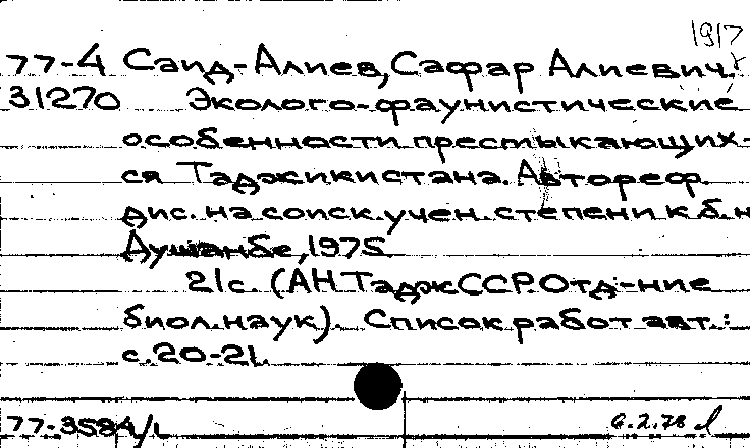 1917
77-4 Саид-Алиев, Сафар Алиевич.
31270 Эколого-фаунистические
особенности пресмыкающих-
ся Таджикистана. Автореф.
дис. на соиск. учен. степени к.б.н
Душанбе, 1975
21с. (АН ТаджССР. Отд-ние
биол. наук). Список работ авт.:
с.20-21.
77-3584/1 6.2.78